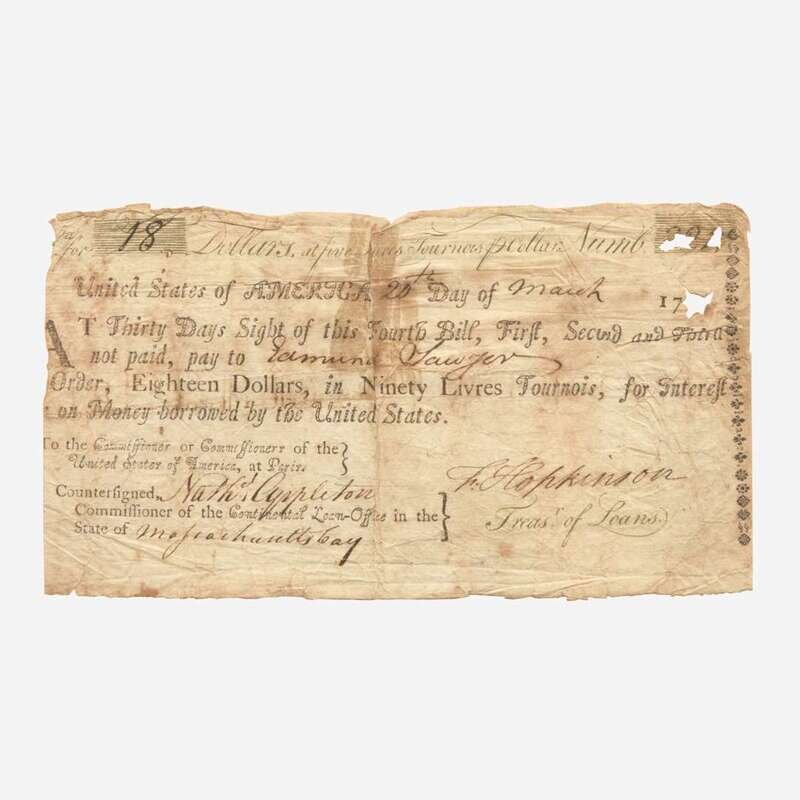 for 18 Dollars, at five Livres Tournois p Dollar Numb 221
United States of AMERICA 20th Day of March 17
AT Thirty Days Sight of this Fourth Bill, First, Second and Third
not paid, pay to Edmund Sawyer
Order, Eighteen Dollars, in Ninety Livres Tournois, for Interest
on Money borrowed by the United States.
To the Commissioner or Commissioners of the
United States of America, at Paris.
Countersigned, Nathl. Appleton
F. Hopkinson
Commissioner of the Continental Loan-Office in the
Treasr. of Loans.
State of Massachusettsbay